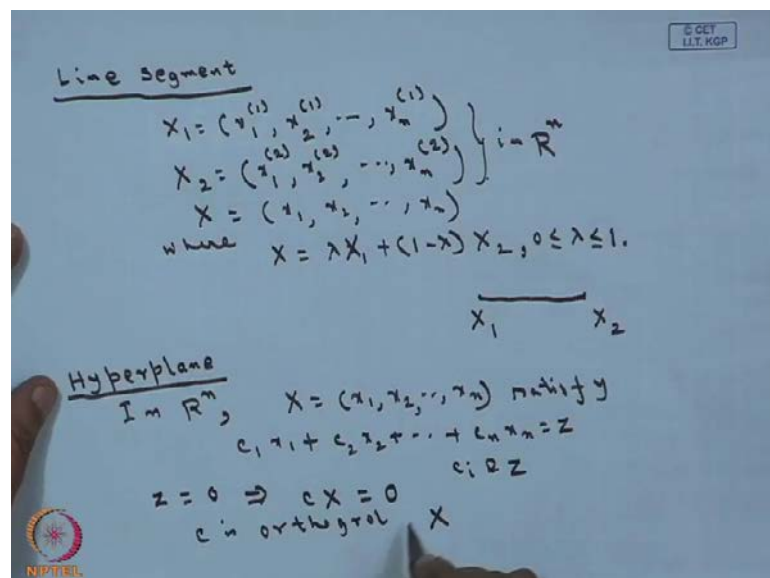 © CET
I.I.T. KGP
Line segment
X₁ = (x₁⁽¹⁾, x₂⁽¹⁾, ..., xₙ⁽¹⁾)
X₂ = (x₁⁽²⁾, x₂⁽²⁾, ..., xₙ⁽²⁾) } in Rⁿ
X = (x₁, x₂, ..., xₙ)
where X = λX₁ + (1-λ) X₂, 0 ≤ λ ≤ 1.
X₁ X₂
Hyperplane
In Rⁿ, X = (x₁, x₂, ..., xₙ) satisfy
c₁x₁ + c₂x₂ + ... + cₙxₙ = Z
cᵢ & Z
z = 0 ⇒ cX = 0
c is orthogral X
NPTEL